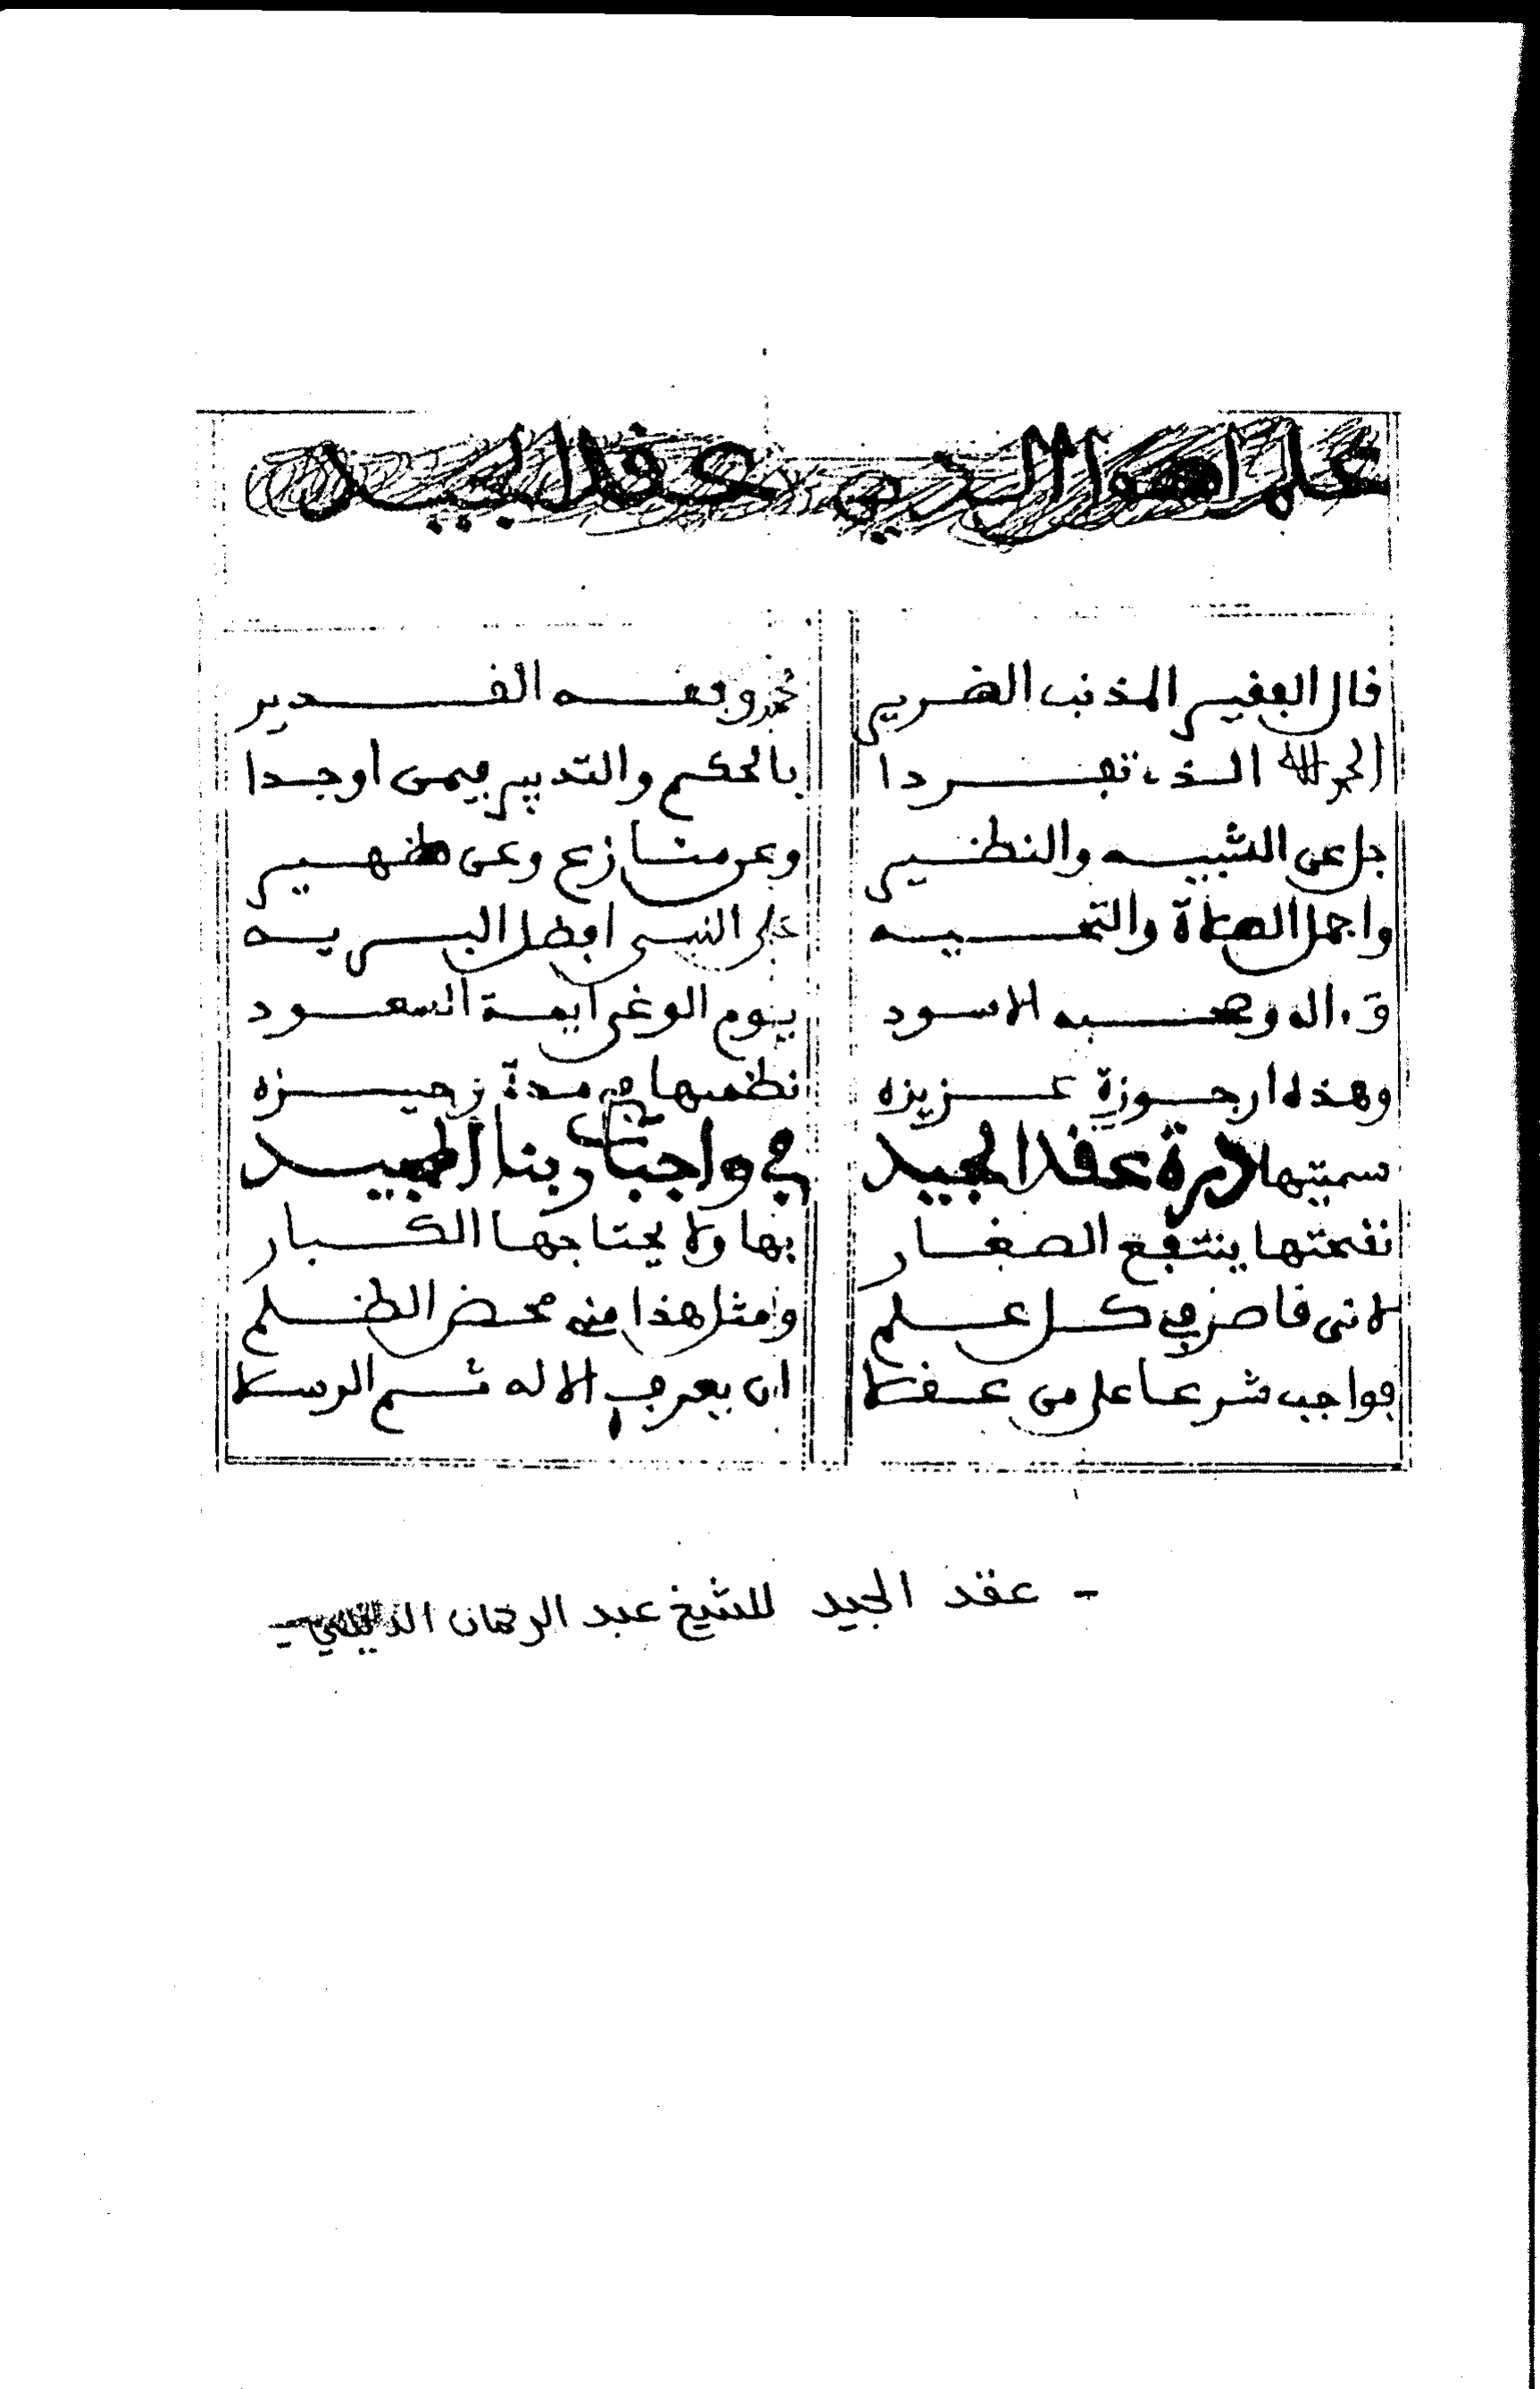 علم اصول الدين عقد الجيد
قال الفقير المذنب الضرير محمد وفقه القدير
الحمد لله الذي تفردا بالحكم والتدبير فيمن اوجدا
جل عن الشبيه والنظير وعن منازع وعن ظهير
واجمل الصلاة والتحيه على النبي افضل البريه
وءاله وصحبه الاسود يوم الوغى ايمة السعود
وهذه ارجوزة عزيزه نظمتها في مدة وجيزه
سميتها درة عقد الجيد في واجبات ربنا المجيد
نفحتها ينتفع الصغار بها ولا يحتاجها الكبار
لانني قاصر في كل علم ومثل هذا منه محض الظلم
فواجب شرعا على من عقلا ان يعرف الاله ثم الرسلا
- عقد الجيد للشيخ عبد الرحمان